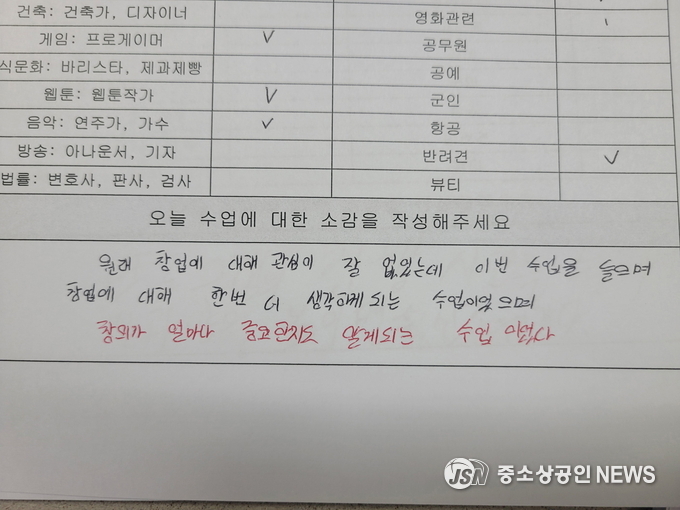 건축: 건축가, 디자이너 영화관련
게임: 프로게이머 공무원
식문화: 바리스타, 제과제빵 공예
웹툰: 웹툰작가 군인
음악: 연주가, 가수 항공
방송: 아나운서, 기자 반려견
법률: 변호사, 판사, 검사 뷰티
오늘 수업에 대한 소감을 작성해주세요
원래 창업에 대해 관심이 잘 없었는데 이번 수업을 들으며
창업에 대해 한번 더 생각하게 되는 수업이었으며
창의가 얼마나 중요한지도 알게되는 수업 이었다
JSN 중소상공인 NEWS